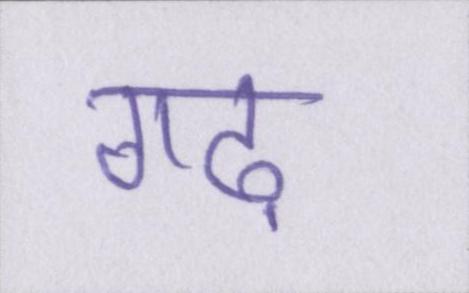 गढ़